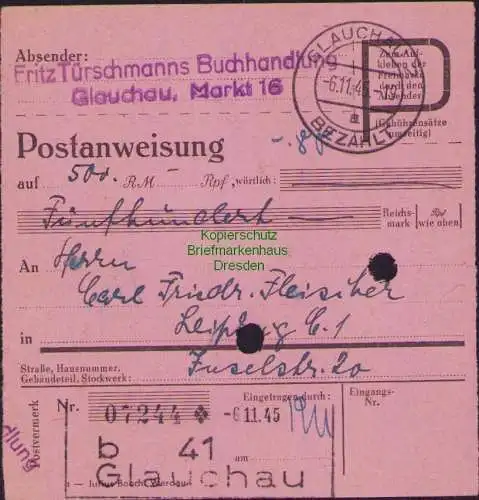 Absender:
Fritz Türschmanns Buchhandlung
Glauchau, Markt 16
GLAUCHAU
-6.11.45
a
BEZAHLT
Zum Auf-
kleben der
Freimarke
durch den
Absender
(Gebührensätze
umseitig)
Postanweisung
auf 500.- RM - Rpf, wörtlich:
Fünfhundert
Reichs-
mark
Rpf
wie oben
Kopierschutz
Briefmarkenhaus
Dresden
An Herrn
Carl Friedr. Fleischer
in Leipzig C.1
Straße, Hausnummer,
Gebäudeteil, Stockwerk:
Inselstr. 20
Postvermerk
dlung
Nr. 07244
Eingetragen durch:
-6 11.45
Eingangs-
Nr.
b 41
am
Glauchau
Werdau